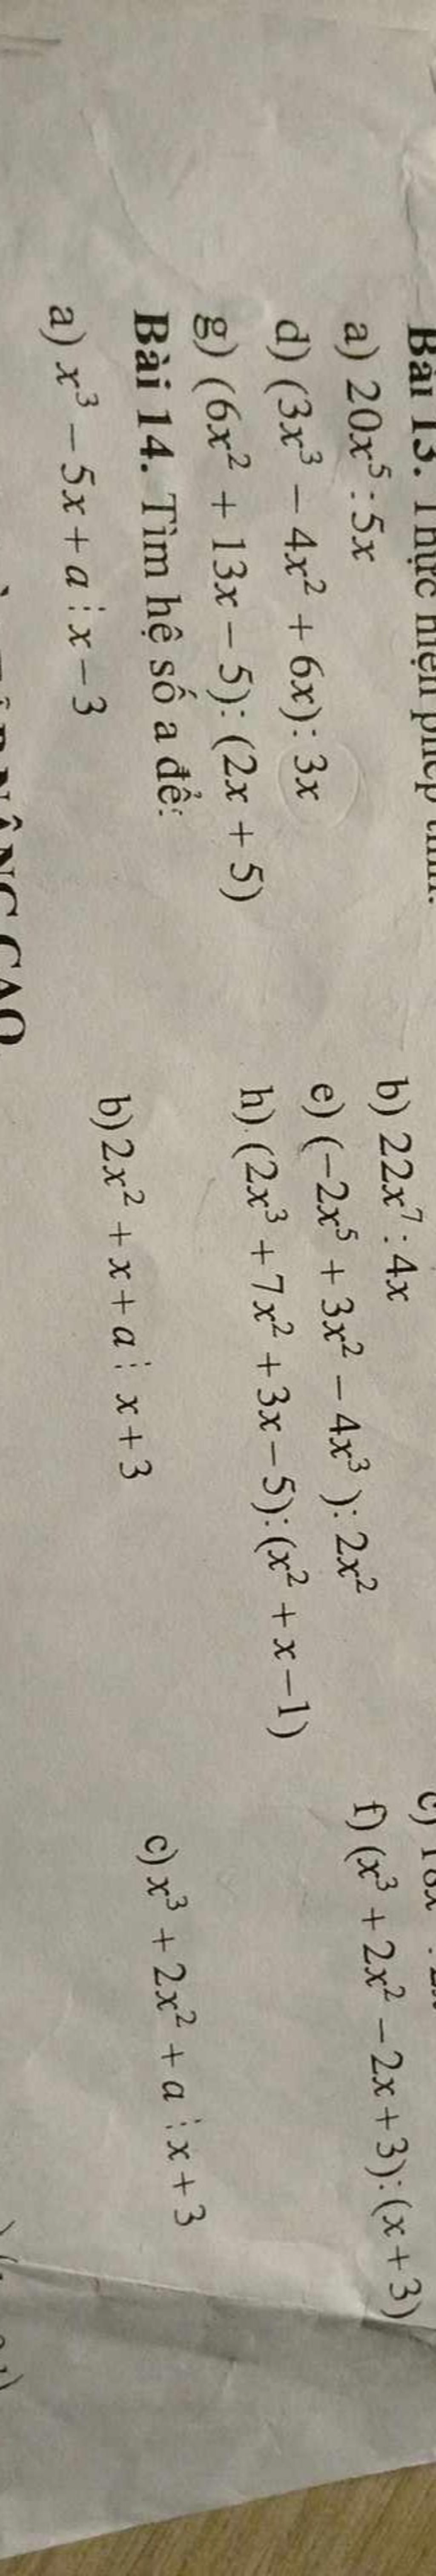 Bài 13. Thực hiện phép tính.
a) 20x⁵ : 5x b) 22x⁷ : 4x c)
d) (3x³ − 4x² + 6x) : 3x e) (−2x⁵ + 3x² − 4x³ ) : 2x² f) (x³ + 2x² − 2x + 3) : (x + 3)
g) (6x² + 13x − 5) : (2x + 5) h) (2x³ + 7x² + 3x − 5) : (x² + x − 1)
Bài 14. Tìm hệ số a để:
a) x³ − 5x + a ⋮ x − 3 b) 2x² + x + a ⋮ x + 3 c) x³ + 2x² + a ⋮ x + 3
NÂNG CAO